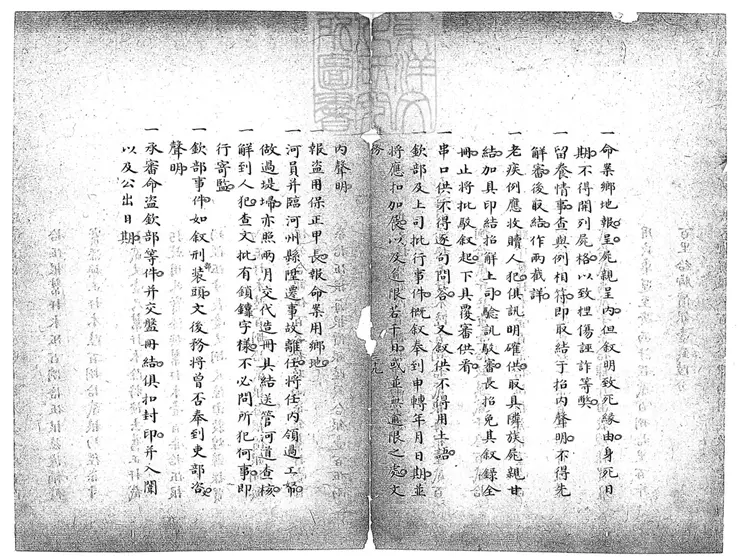 一命案鄉地報呈屍親呈內但叙明致死緣由身死日
期不得開列屍格以致捏傷誣詐等獘
一留養情事查與例相符即取結于招內聲明不得先
解審後取結作兩截詳
一老疾例應收贖人犯俱訊明確供取具隣族屍親甘
結加具印結招解上司驗訊駁審長招免其叙錄全
冊止將批駁叙起下具覆審供看
一串口供不得逐句問答又叙供不得用土語
一欽部及上司批行事件概叙奉到申轉年月日期並
將應扣加展以及逾限若干日或並無逾限之處文
內聲明
一報盜用保正甲長報命案用鄉地
一河員并臨河州縣陞遷事故離任將任內領過工
做過堤埽亦照兩月交代造冊具結送管河道查核
一解到人犯查文批有鎖鐐字樣不必問所犯何事即
行寄監
一欽部事件如叙刑部裝頭文後務將曾否奉到吏部咨
聲明
一承審命盜欽部等件并交盤冊結俱扣封印并入闈
以及公出日期